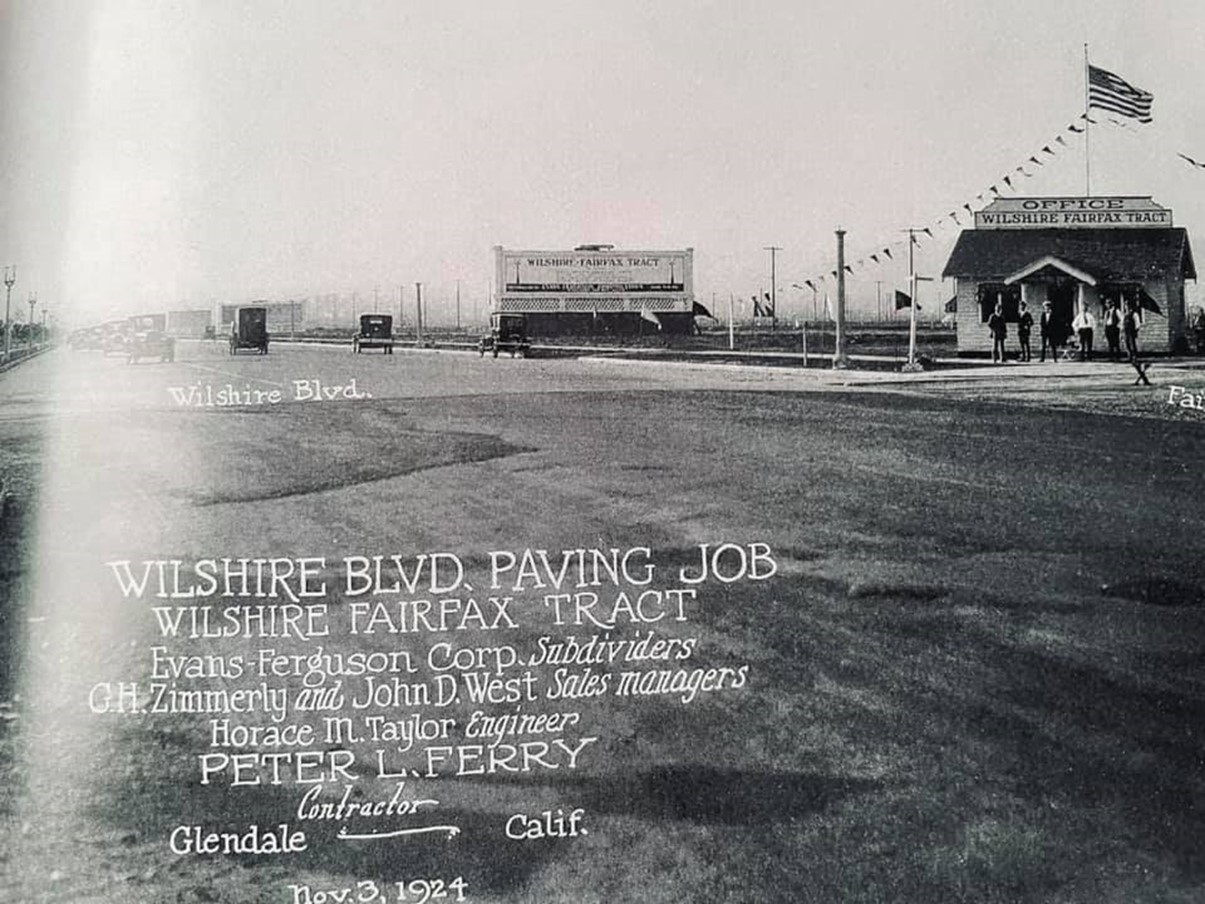 OFFICE
WILSHIRE FAIRFAX TRACT
WILSHIRE-FAIRFAX TRACT
Wilshire Blvd.
Fai
WILSHIRE BLVD. PAVING JOB
WILSHIRE FAIRFAX TRACT
Evans-Ferguson Corp. Subdividers
G.H. Zimmerly and John D. West Sales managers
Horace M. Taylor Engineer
PETER L. FERRY
Contractor
Glendale Calif.
Nov. 3, 1924